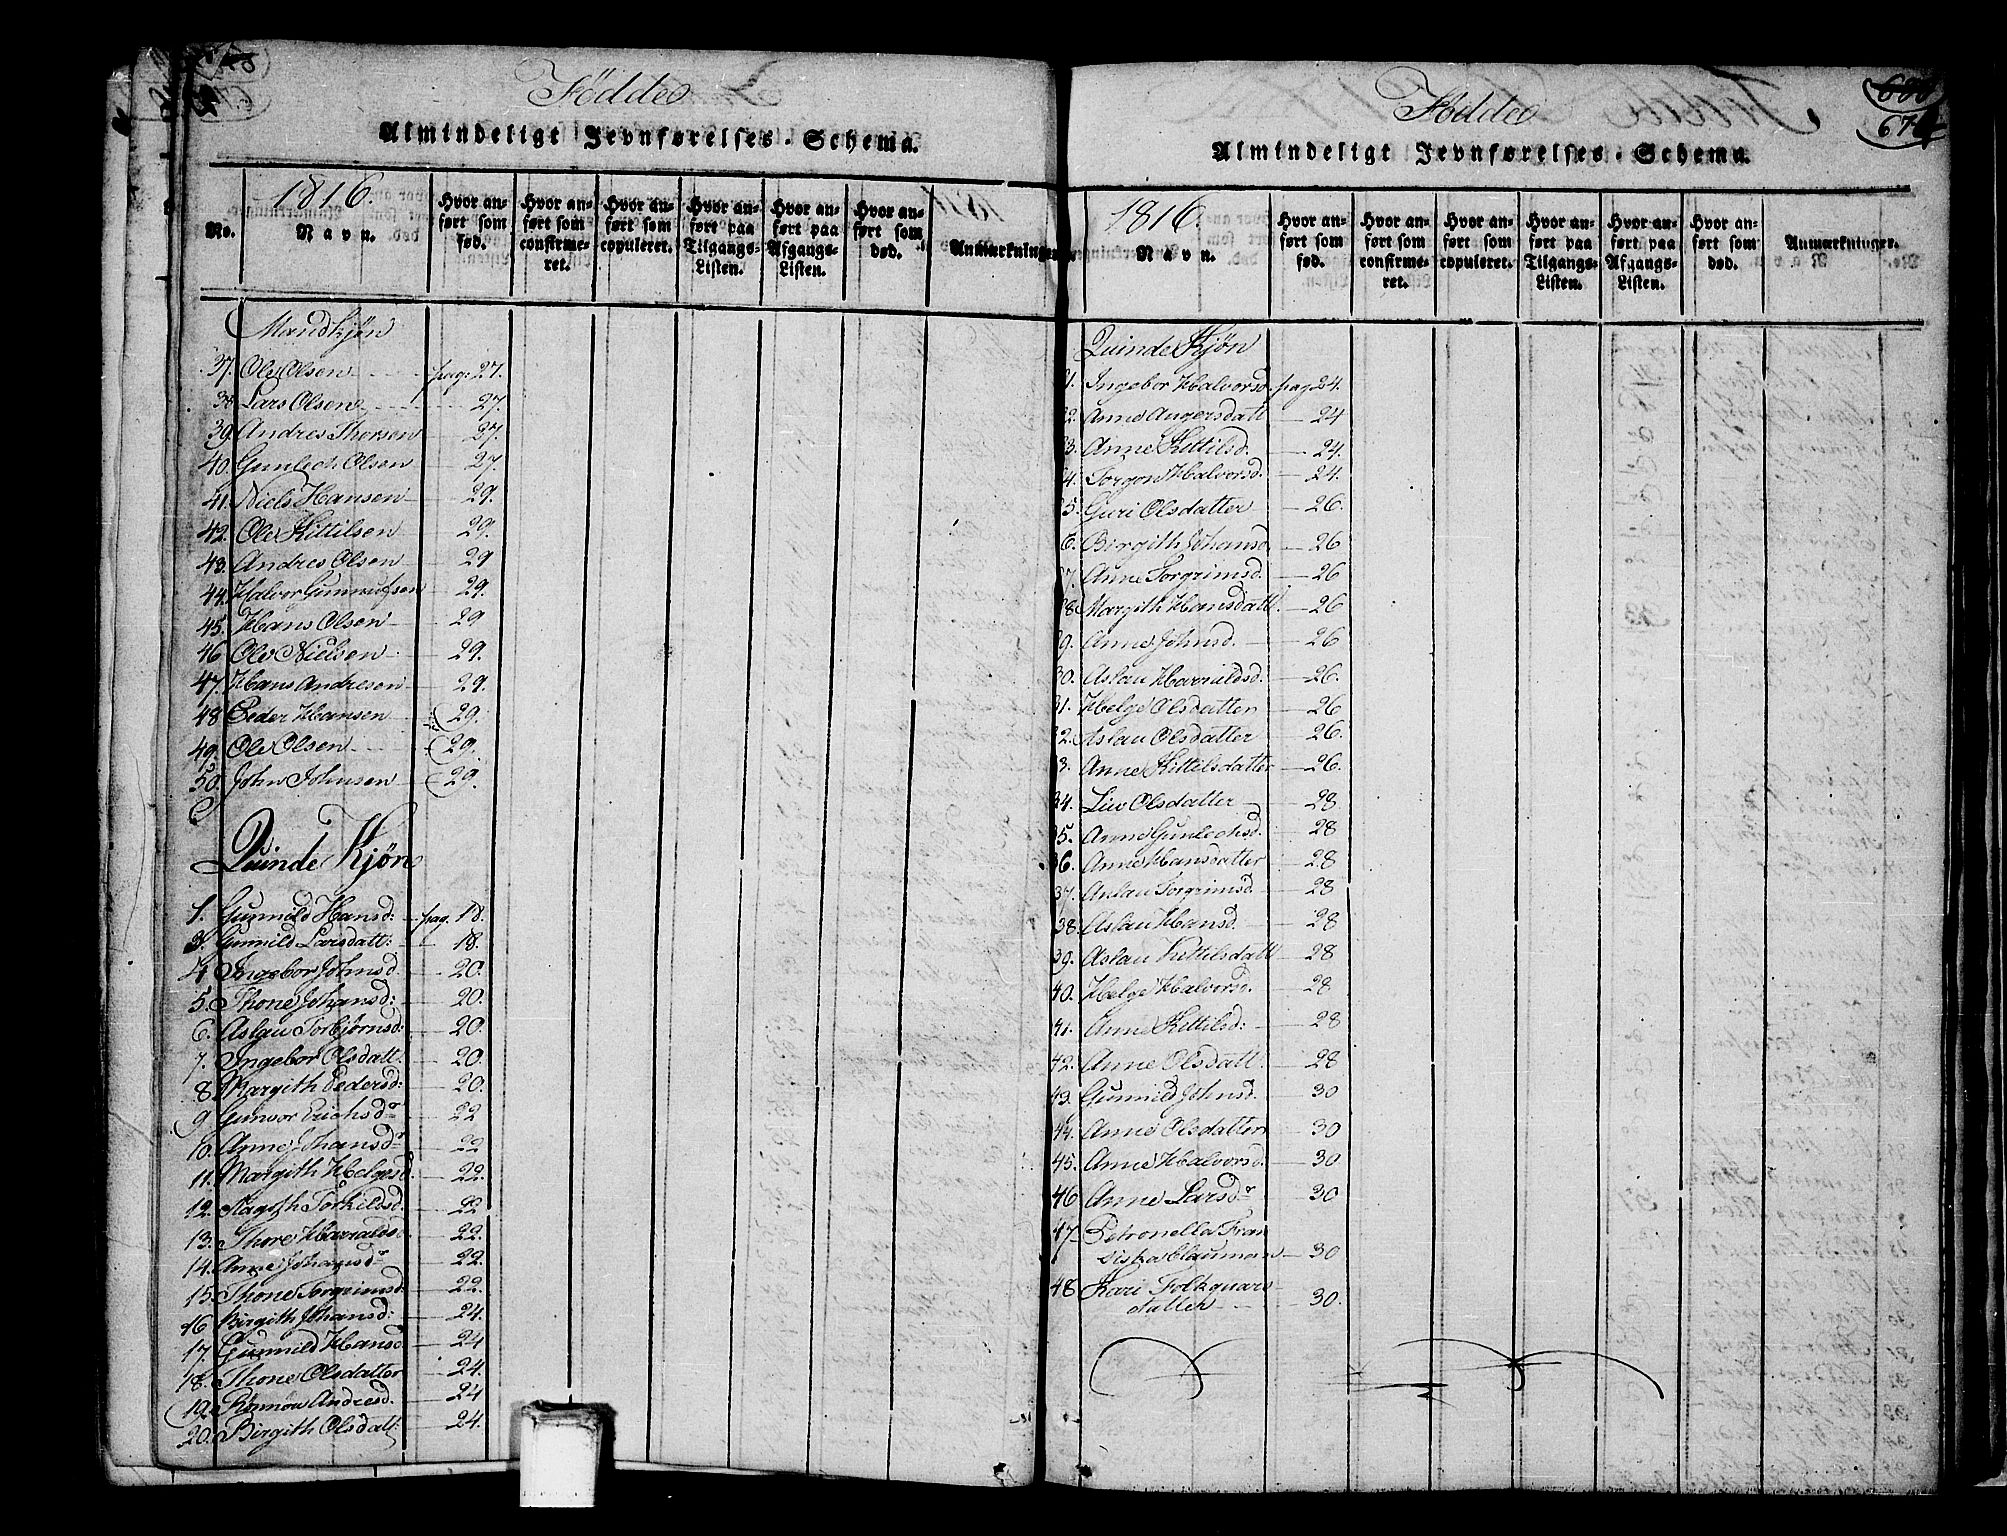 Födde
Almindeligt Jevnførelses-Schema.
1816.
No.
Navn.
Hvor anført som fød.
Hvor anført som confirmeret.
Hvor anført som copuleret.
Hvor anført paa Tilgangs-Listen.
Hvor anført paa Afgangs-Listen.
Hvor anført som død.
Anmærkninger.
Mandkjøn
37. Ole Olsen pag: 27.
38 Lars Olsen 27.
39. Andres Thorsen 27.
40. Gunlech Olsen 27.
41. Niels Hansen 29.
42. Ole Kittilsen 29.
43. Andres Olsen 29
44. Halvor Gunnufsen 29.
45. Hans Olsen 29
46 Ole Nielsen 29.
47. Hans Andresen 29.
48 Peder Hansen 29.
49. Ole Olsen 29.
50. John Johnsen 29.
Quinde Kjøn
1. Gunnild Hansd: pag. 18.
3. Gunnild Larsdatt: 18.
4 Ingebor Johnsd 20.
5. Thone Johansd: 20.
6. Aslau Torbjørnsd: 20.
7. Ingebor Olsdatt. 20.
8. Margith Pedersd: 20.
9 Gunvor Erichsdr 22
10. Anne Johansdr 22
11. Margith Helgesd. 22.
12. Aagoth Torkildsd. 22
13. Thore Havraldsd. 22.
14. Anne Johansdr 22.
15. Thone Torgrimsd. 22.
16 Birgith Johansd: 24.
17. Gunnild Hansd 24
18. Thone Olsdatter 24.
19. Rønnov Andresd. 24
20. Birgith Olsdatt: 24.
Födde
674
Almindeligt Jevnførelses-Schema.
1816.
Navn.
Hvor anført som fød.
Hvor anført som confirmeret.
Hvor anført som copuleret.
Hvor anført paa Tilgangs-Listen.
Hvor anført paa Afgangs-Listen.
Hvor anført som død.
Anmærkninger.
Quinde Kjøn
1. Ingebor Halvorsd. pag 24.
2. Anne Aagersdatt 24
3. Anne Kittilsd. 24.
4. Torgon Halvorsd. 24.
5. Guri Olsdatter 26.
6. Birgith Johansd. 26
7. Anne Torgrimsd. 26
8. Margith Hansdatt. 26
9. Anne Johnsd. 26
30. Aslau Havraldsd. 26.
31. Helge Olsdatter 26
32. Aslau Olsdatter 26.
3. Anne Kittilsdatter 26.
34. Liv Olsdatter 28
35. Anne Gunlechsd. 28
36. Anne Hansdatter 28
37. Aslau Torgrimsd 28
38. Aslau Hansd. 28
39. Aslau Kittilsdatt 28
40. Helge Halvorsd. 28
41. Anne Kittilsd: 28
42. Anne Olsdatt. 28
43. Gunnild Johnsd. 30
44. Anne Olsdatter 30
45. Anne Halvorsd. 30
46 Anne Larsdr 30
47 Petronella Fran
siska Clausman 30
48 Kari Folkquars
datter 30.